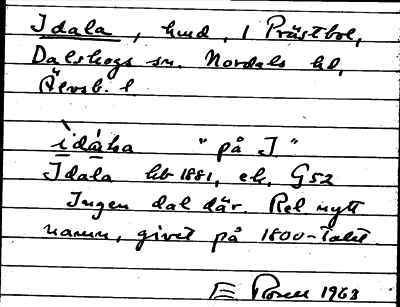 Idala, hmd, 1 Prästbol,
Dalskogs sn. Nordals hd,
Älvsb. l.
ìdáḷa "på I."
Idala hb 1881, ek. G52
Ingen dal där. Rel nytt
namn, givet på 1800-talet.
E Rosell 1963